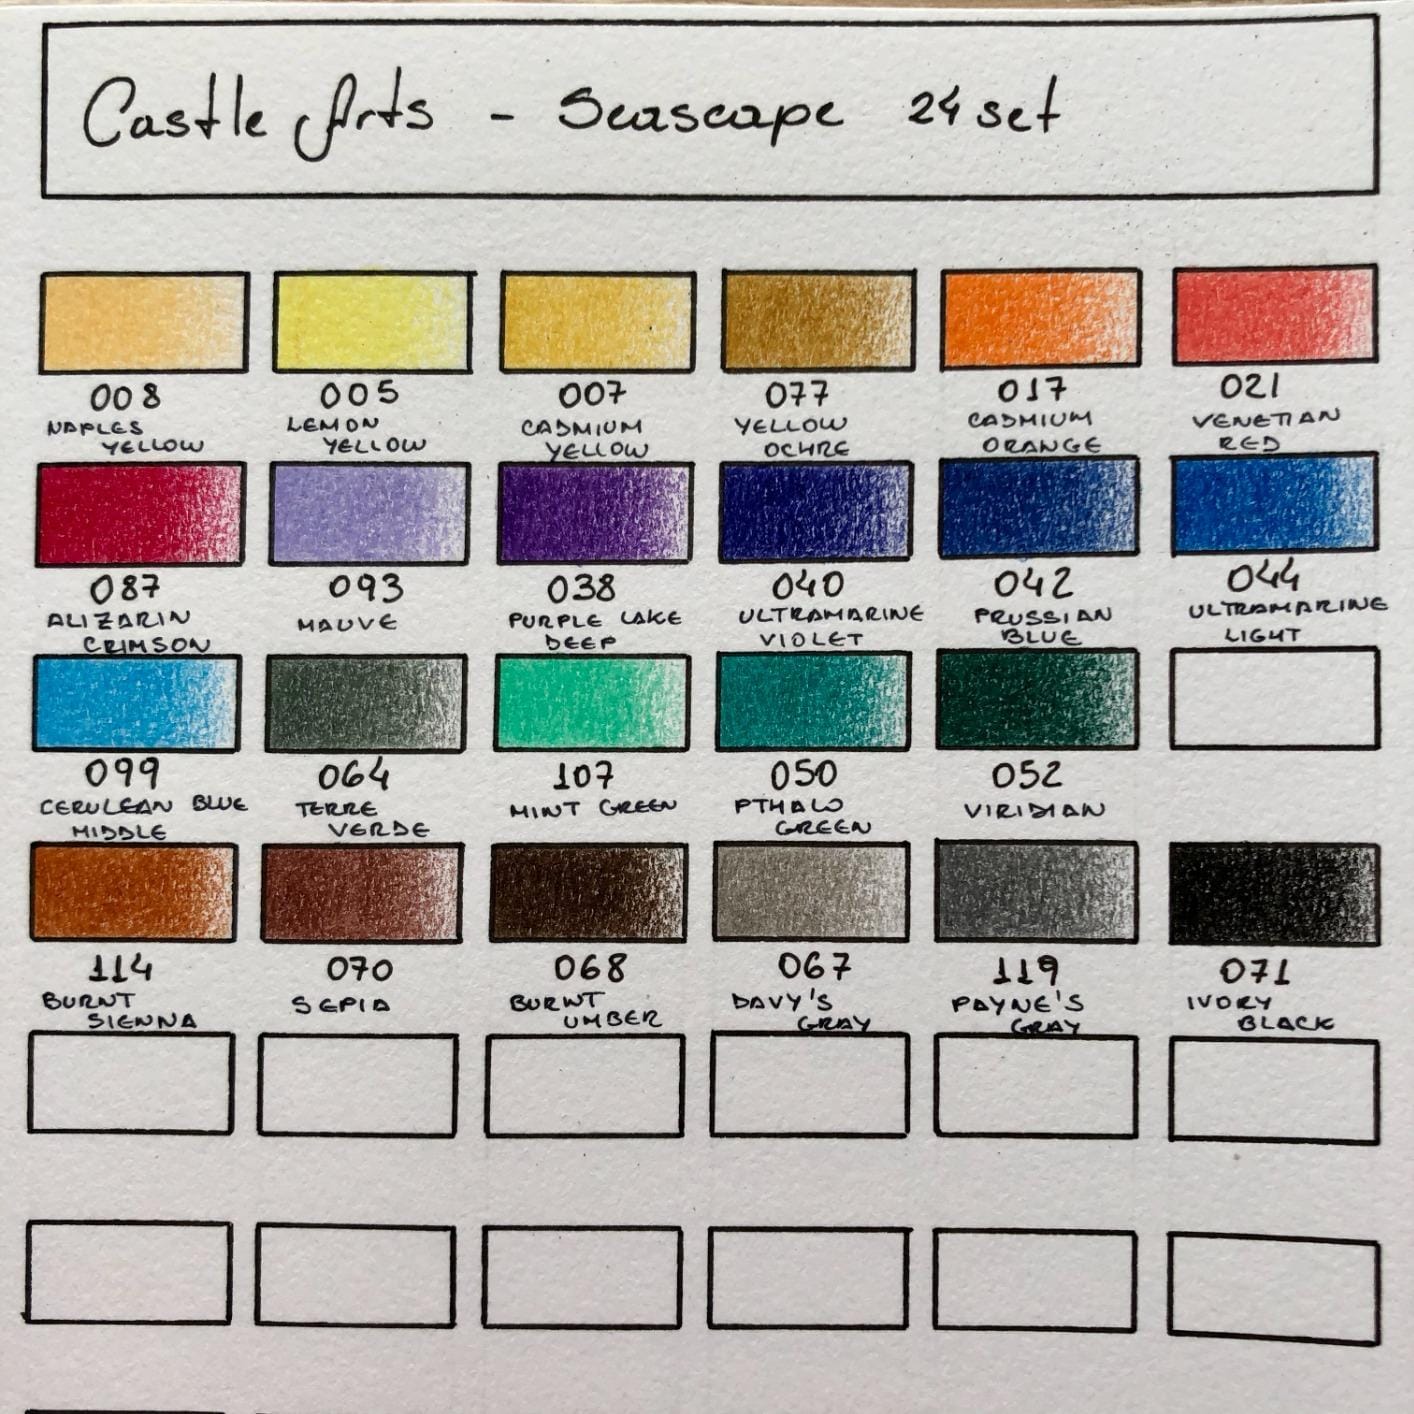 Castle Arts - Seascape 24 set
008 005 007 077 017 021
NAPLES YELLOW LEMON YELLOW CADMIUM YELLOW YELLOW OCHRE CADMIUM ORANGE VENETIAN RED
087 093 038 040 042 044
ALIZARIN CRIMSON MAUVE PURPLE LAKE DEEP ULTRAMARINE VIOLET PRUSSIAN BLUE ULTRAMARINE LIGHT
099 064 107 050 052
CERULEAN BLUE MIDDLE TERRE VERDE MINT GREEN PTHALO GREEN VIRIDIAN
114 070 068 067 119 071
BURNT SIENNA SEPIA BURNT UMBER DAVY'S GRAY PAYNE'S GRAY IVORY BLACK